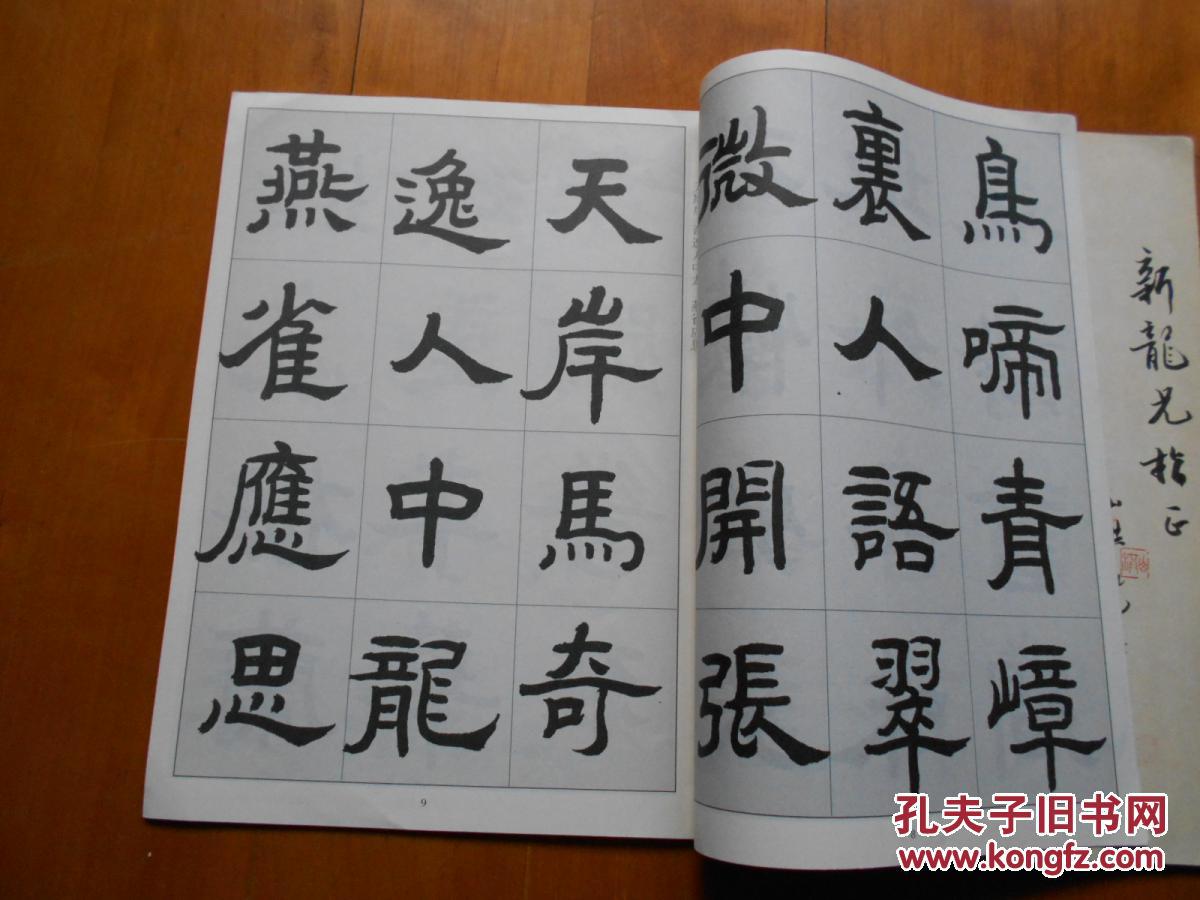 鳥啼青嶂
裏人語翠
微中開張
天岸馬奇
逸人中龍
燕雀應思
9
新龍兄指正
孔夫子旧书网
www.kongfz.com